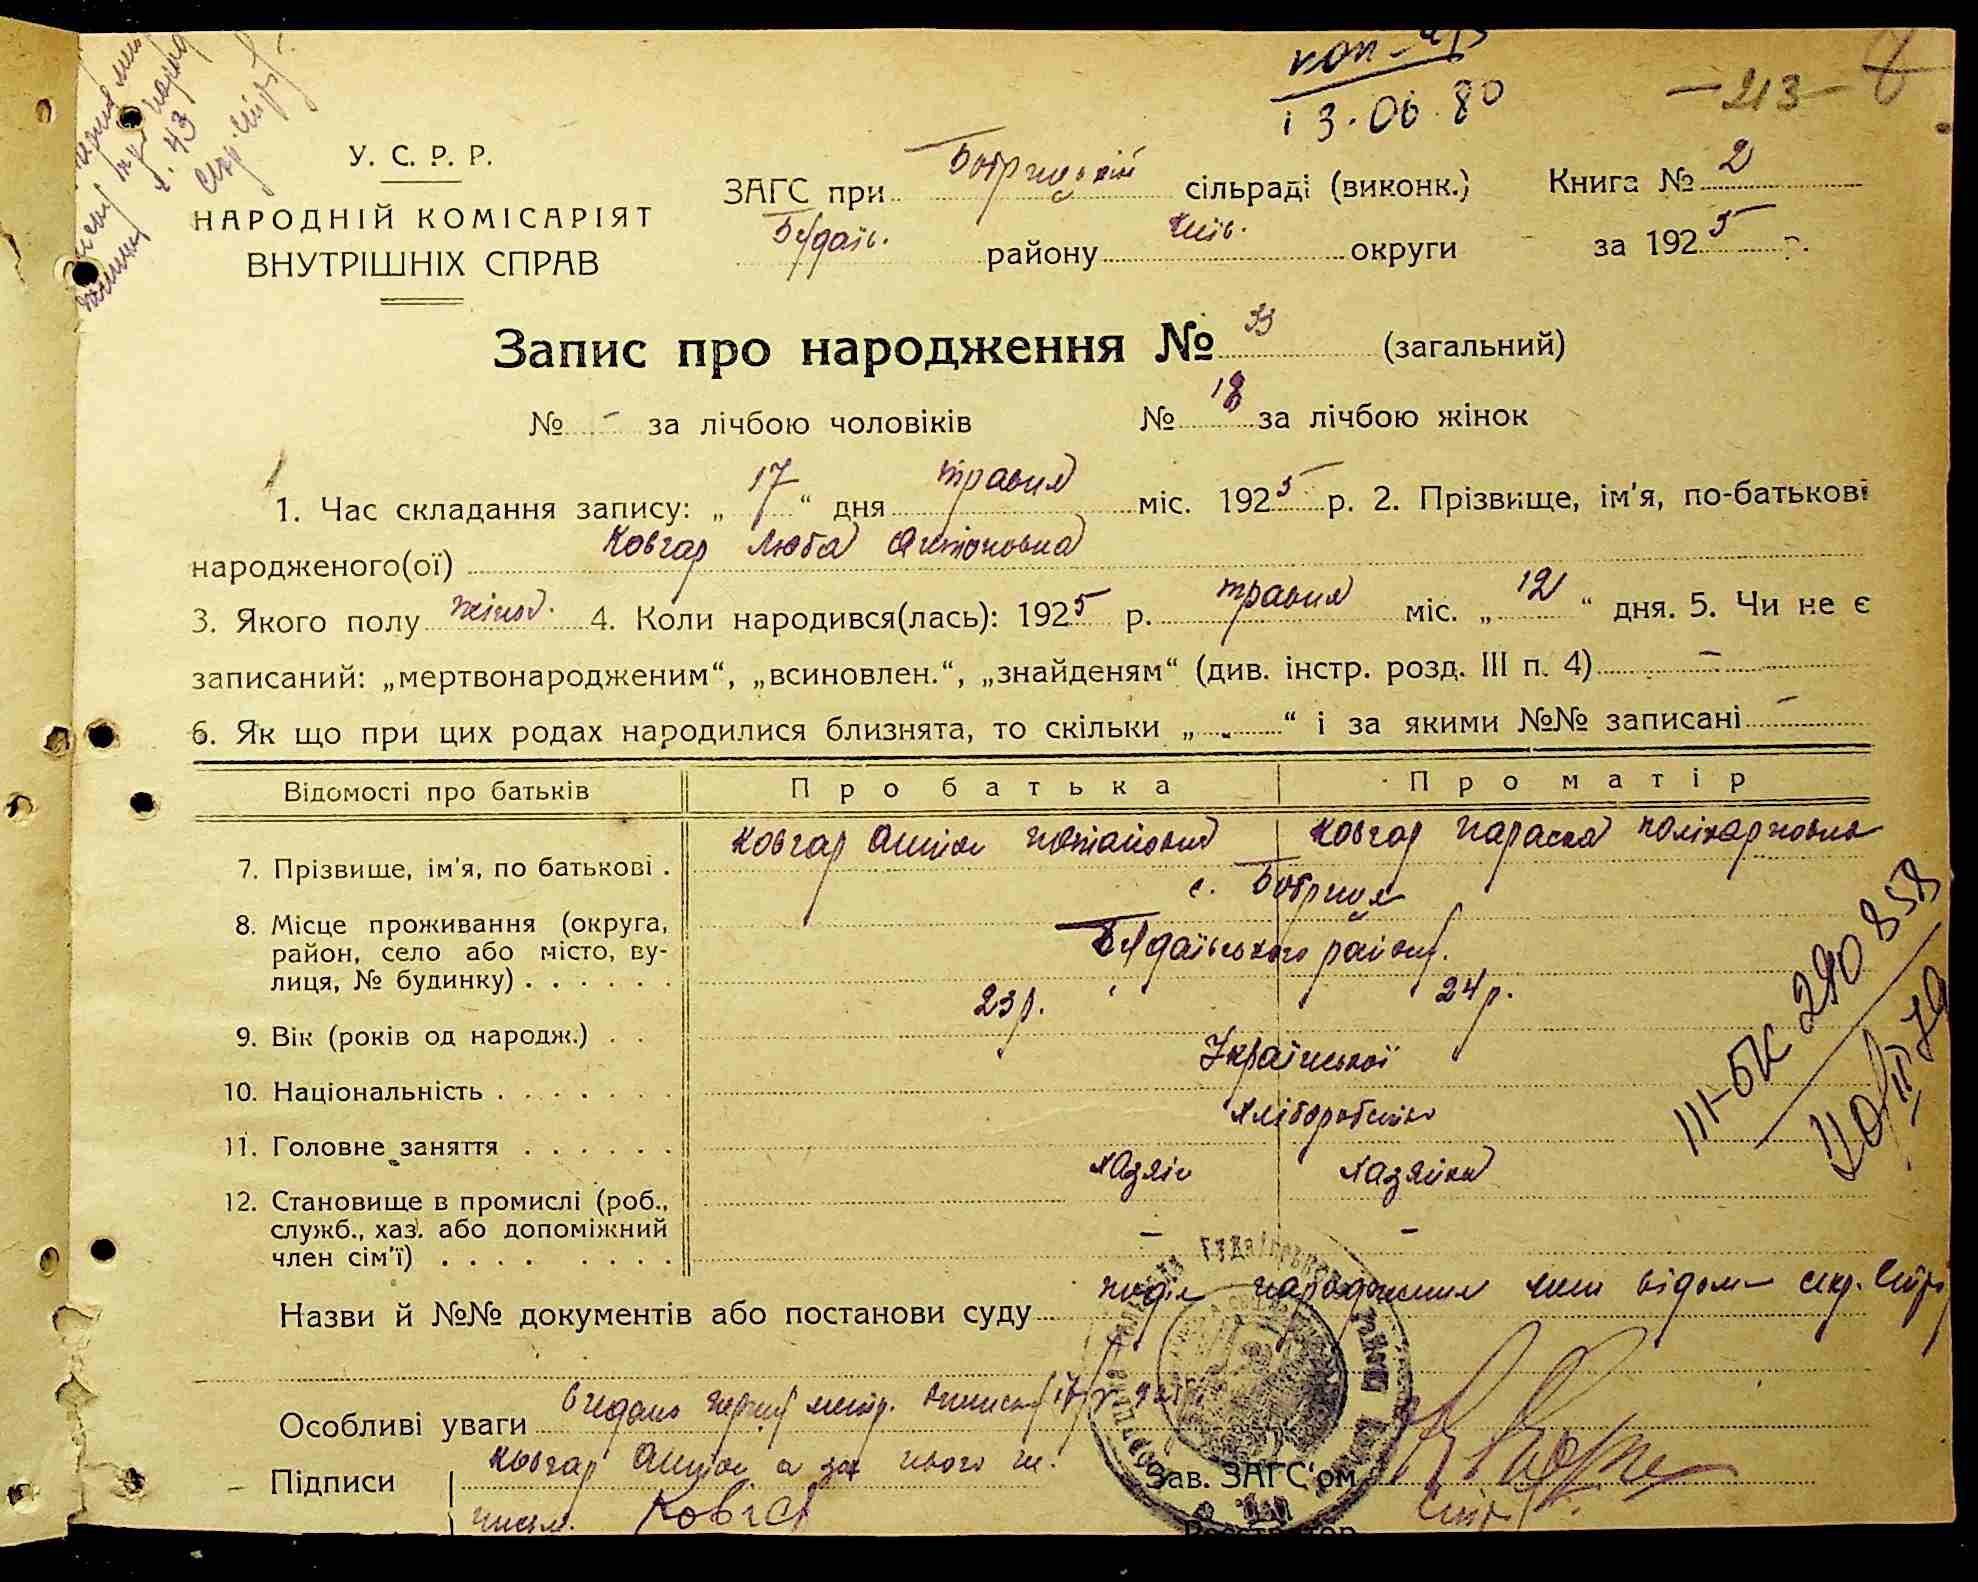 13.06.80
-213-
У. С. Р. Р.
НАРОДНІЙ КОМІСАРІЯТ
ВНУТРІШНІХ СПРАВ
ЗАГС при Бобрицькій сільраді (виконк.) Книга № 2
Будаїв. району Київ. округи за 1925 р.
Запис про народження № 33 (загальний)
№ - за лічбою чоловіків № 18 за лічбою жінок
1. Час складання запису: „ 17 “ дня травня міс. 1925 р. 2. Прізвище, ім'я, по-батькові
народженого(ої) Ковгар Люба Антоновна
3. Якого полу жіноч. 4. Коли народився(лась): 1925 р. травня міс. „ 12 “ дня. 5. Чи не є
записаний: „мертвонародженим“, „всиновлен.“, „знайденям“ (див. інстр. розд. III п. 4) -
6. Як що при цих родах народилися близнята, то скільки „ - “ і за якими №№ записані -
Відомості про батьків Про батька Про матір
7. Прізвище, ім'я, по батькові . Ковгар Антон Потапович Ковгар Параска Полікарповна
8. Місце проживання (округа, с. Бобриця
район, село або місто, ву- Будаївського району.
лиця, № будинку) . . . . . .
9. Вік (років од народж.) . . 23 р. 24 р.
10. Національність . . . . . . . Української
11. Головне заняття . . . . . . Хліборобство
12. Становище в промислі (роб., хазяїн хазяйка
служб., хаз. або допоміжний
член сім'ї) . . . . . . . . - -
Назви й №№ документів або постанови суду подія народження мені відом- секр.
Особливі уваги видано
Підписи Ковгар Антон а за нього не- Зав. ЗАГС'ом
письм. Ковгар
III-БК 290858